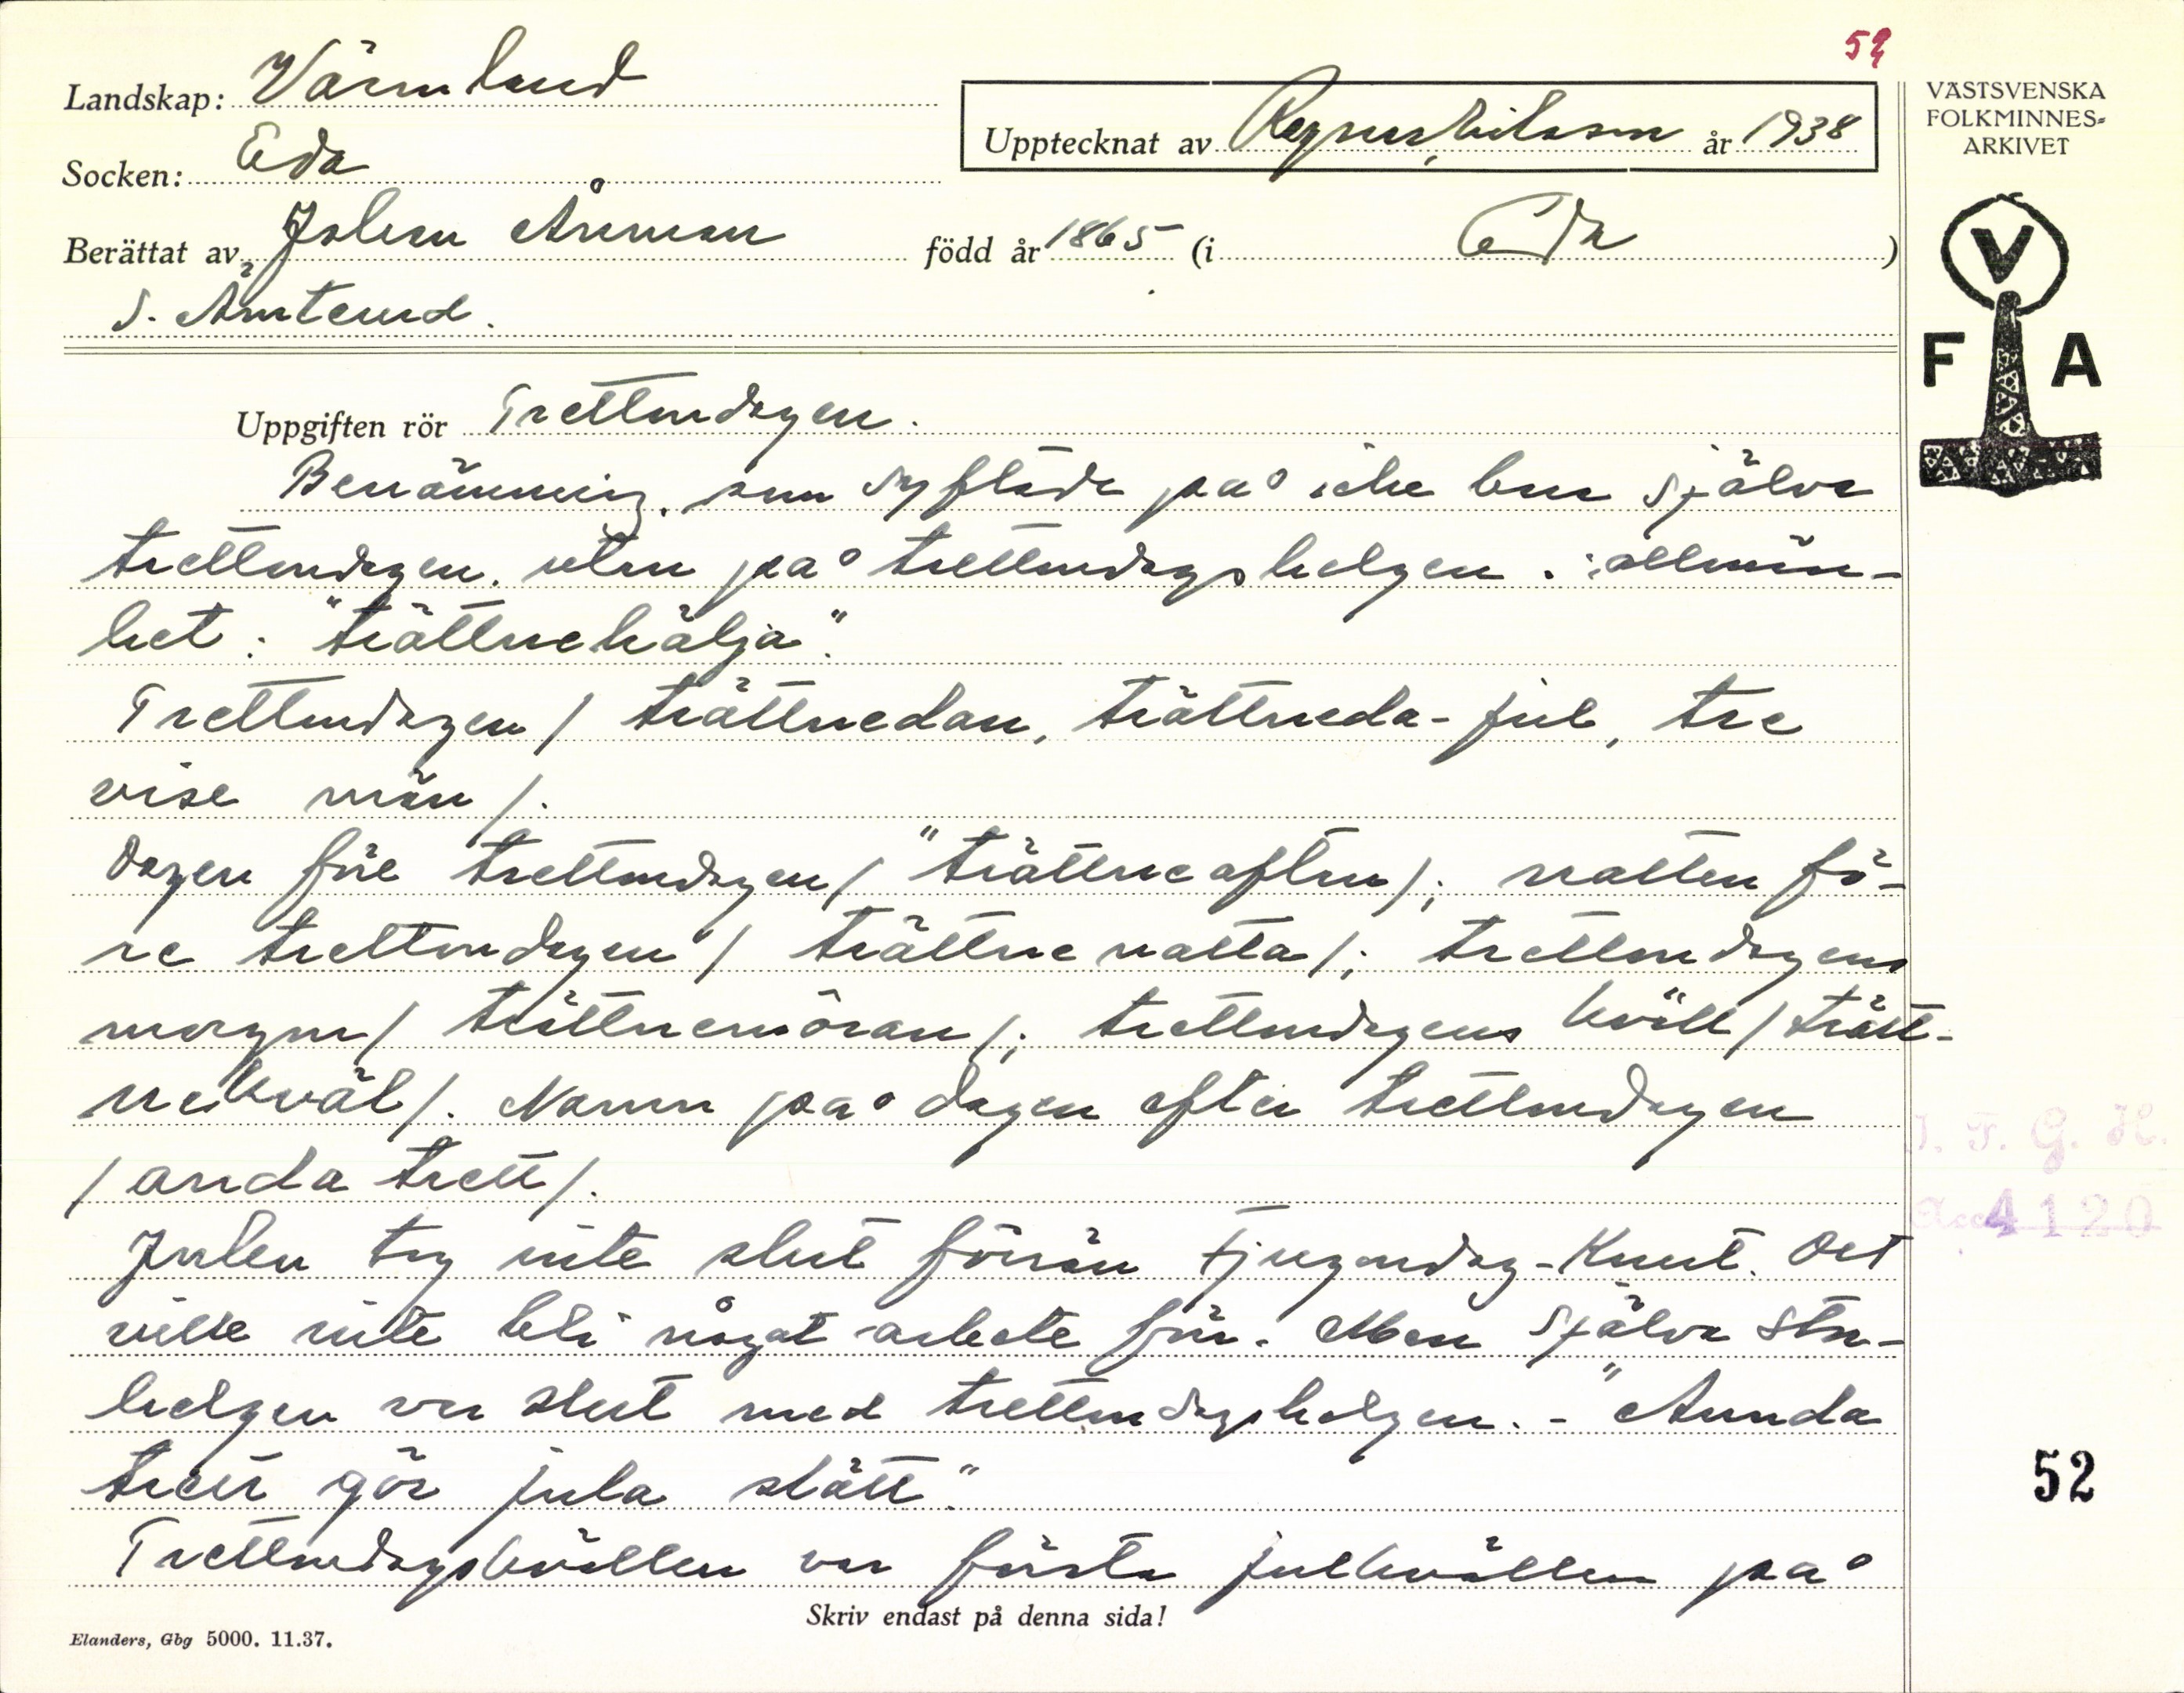 52
Landskap: Värmland
Socken: Eda
Upptecknat av Ragnar Nilsson år 1938
VÄSTSVENSKA
FOLKMINNES=
ARKIVET
Berättat av Johan Åreman född år 1865 (i Eda)
S. Åmterud.
V
F A
Uppgiften rör Trettondagen.
Benämning, som syftade på icke bara själva
trettondagen, utan på trettondagshelgen i allmän-
het: "trättnehälja".
Trettondagen / trättnedan, trättneda-jul, tre
vise män /.
Dagen före trettondagen / "trättneaftan /; natten fö-
re trettondagen / trättnenatta /; trettondagens
morgon / trättnemöran /; trettondagens kväll / trätt-
nekväl /. Namn på dagen efter trettondagen
/ anda trett /.
J. F. G. H.
Acc. 4120
Julen tog inte slut förrän tjugondag-Knut. Det
ville inte bli något arbete förr. Men själva stor-
helgen var slut med trettondagshelgen. - "Annda
trett gör jula slätt."
52
Trettondagskvällen var första julkvällen på
Skriv endast på denna sida!
Elanders, Gbg 5000. 11.37.